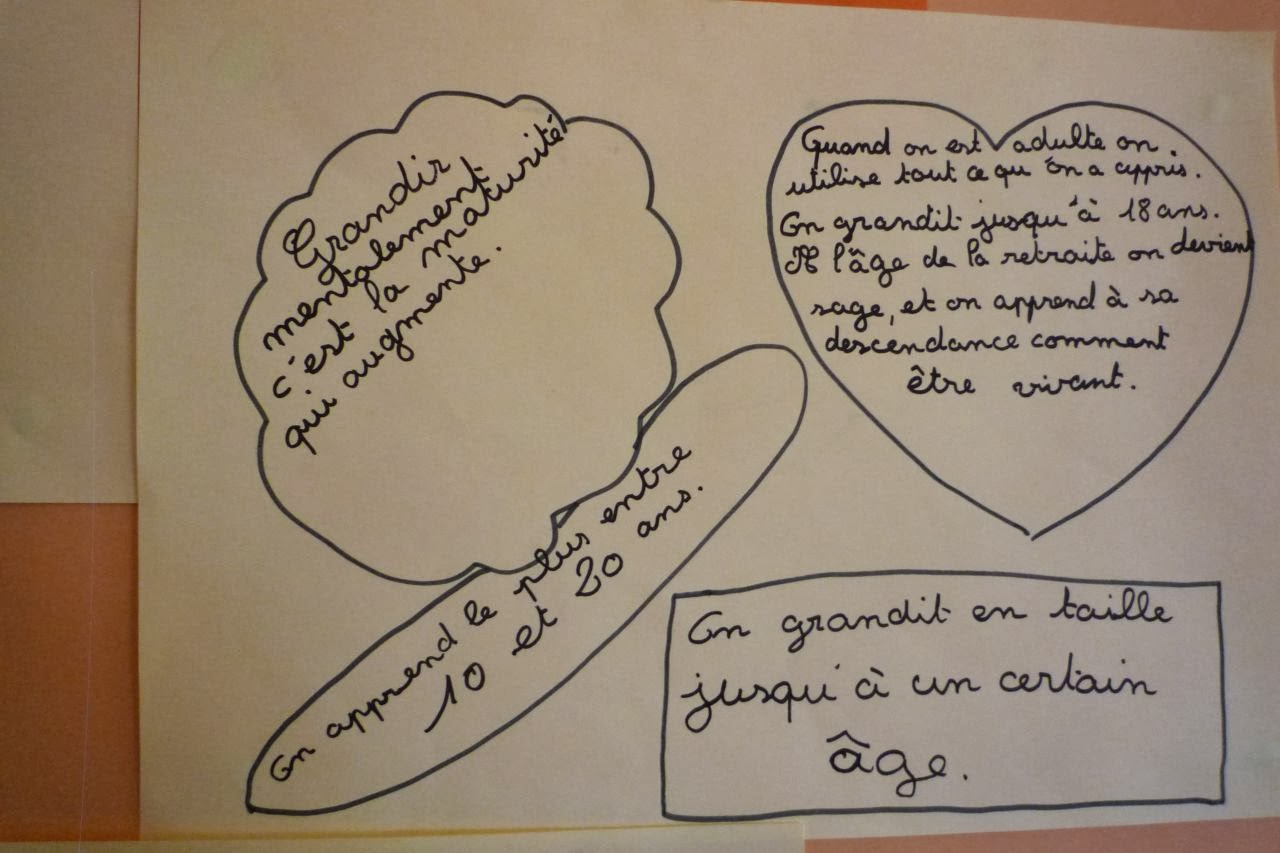 Grandir
mentalement
c'est la maturité
qui augmente.
Quand on est adulte on
utilise tout ce qu'on a appris.
On grandit jusqu'à 18 ans.
A l'âge de la retraite on devient
sage, et on apprend à sa
descendance comment
être vivant.
On apprend le plus entre
10 et 20 ans.
On grandit en taille
jusqu'à un certain
âge.